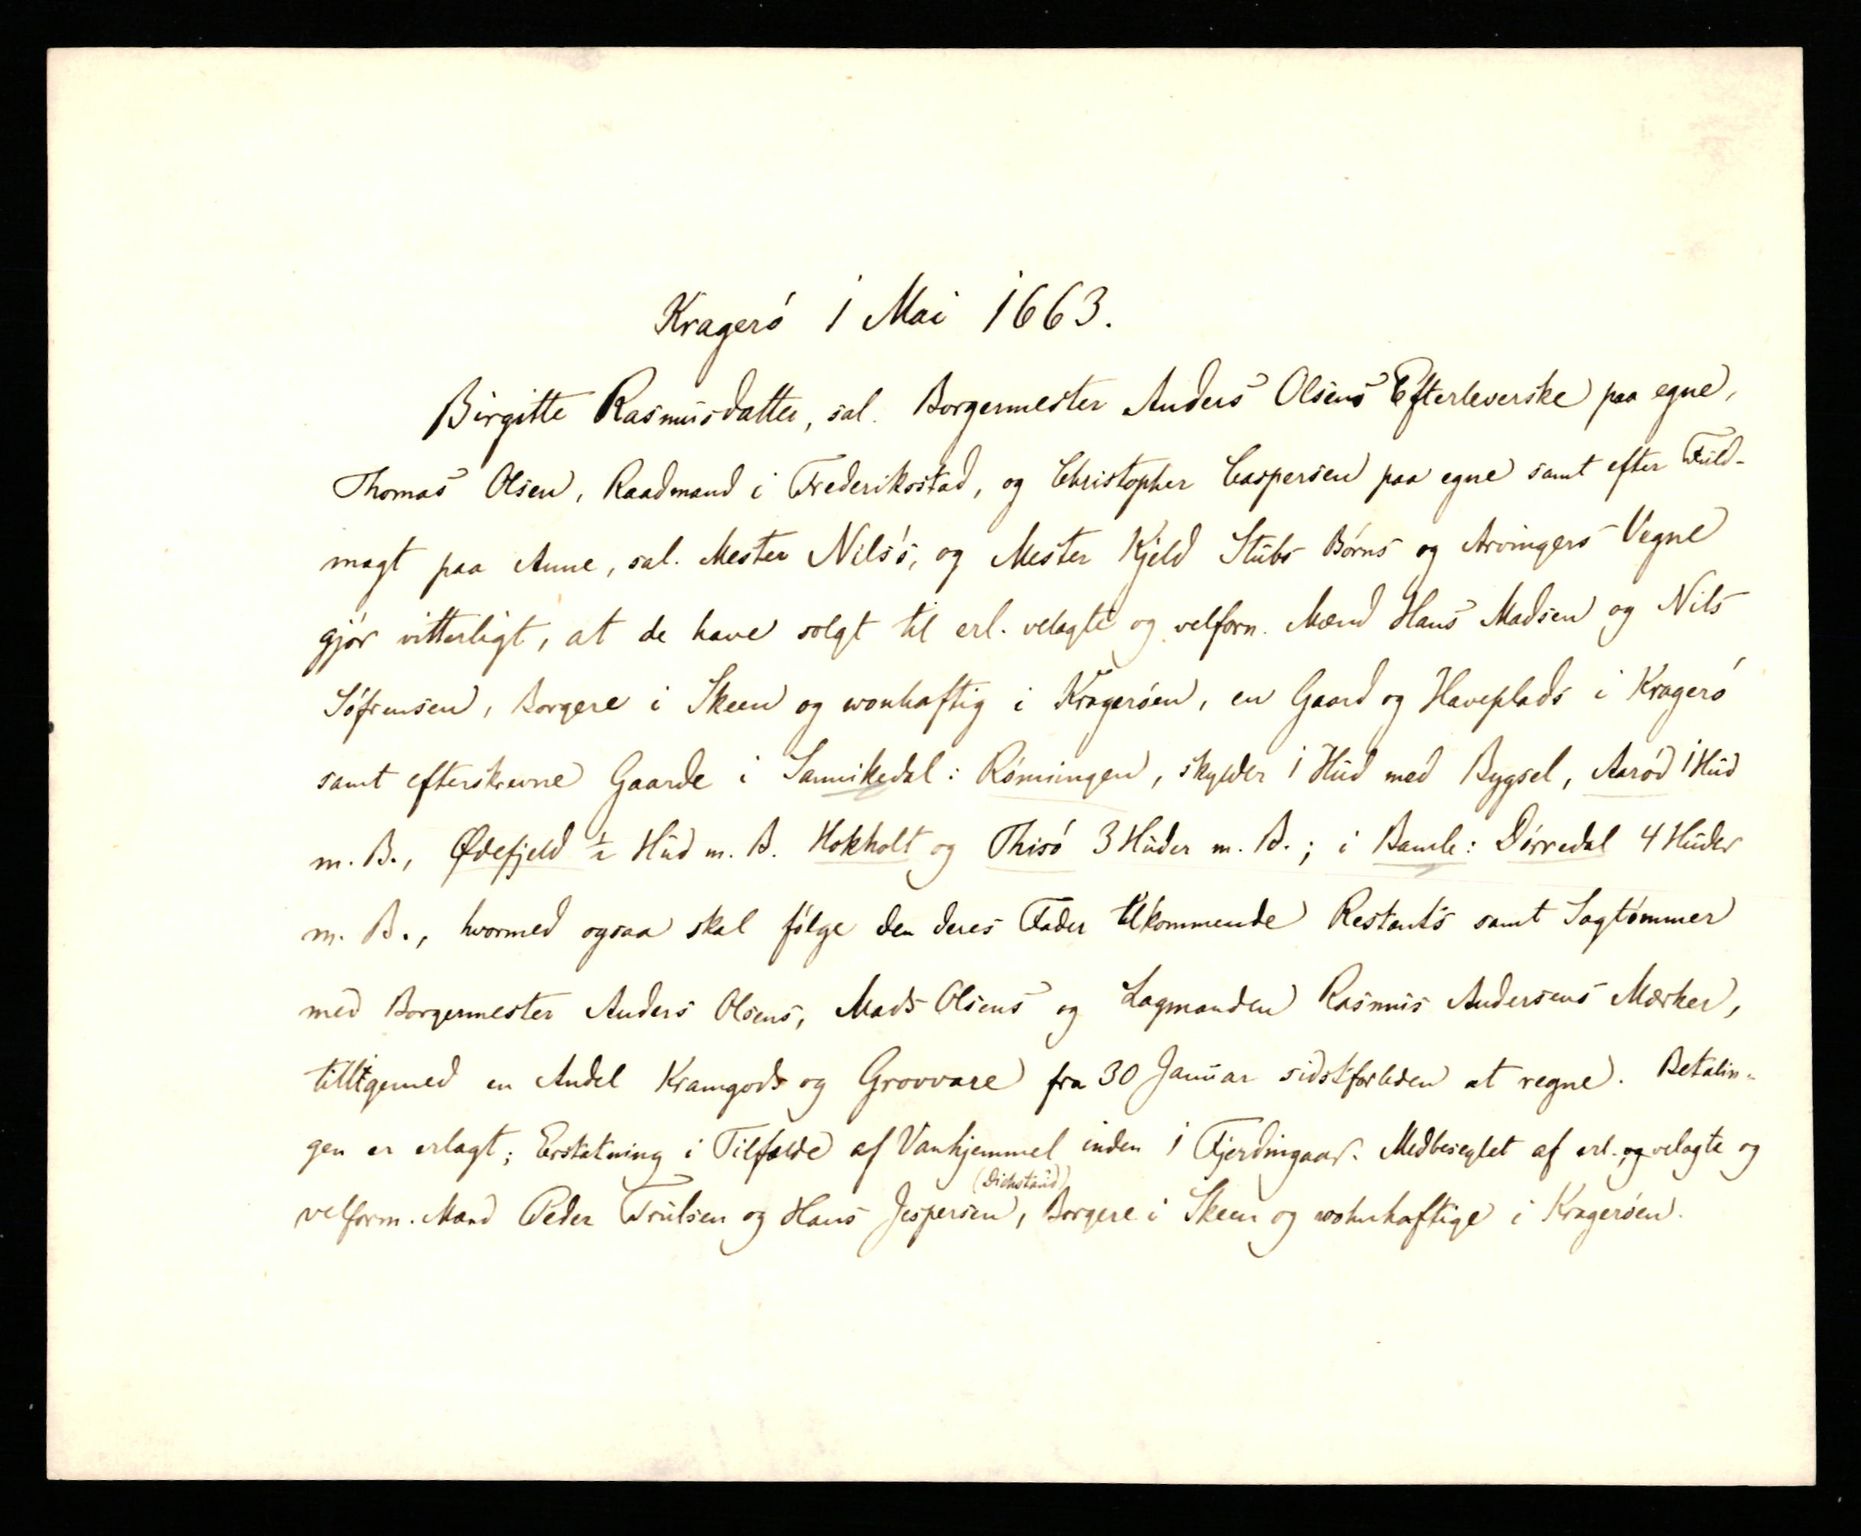 Kragerø 1 Mai 1663.
Birgitte Rasmusdatter, sal. Borgermester Anders Olsens Efterleverske paa egne,
Thomas Olsen, Raadmand i Frederiksstad, og Christopher Caspersen paa egne samt efter Fuld-
magt paa Anne, sal. Mester Nils's, og Mester Kjeld Stubs Børns og Arvingers Vegne
gjør vitterligt, at de have solgt til erl. velagte og velforn. Mænd Hans Madsen og Nils
Søfrensen, Borgere i Skeen og wonhaftig i Kragerøen, en Gaard og Haveplads i Kragerø
samt efterskrevne Gaarde i Sannikedal: Rønningen, skylder 1 Hud med Bygsel, Aarød 1 Hud
m. B., Ødefjeld ½ Hud m. B. Hokholt og Thisø 3 Huder m. B.; i Bamle: Dørredal 4 Huder
m. B., hvormed ogsaa skal følge den deres Fader tilkommende Restants samt Sagtømmer
med Borgermester Anders Olsens, Mads Olsens og Lagmanden Rasmus Andersens Mærker,
tilligemed en Andel Kramgods og Grovvare fra 30 Januar sidstforleden at regne. Betalin-
gen er erlagt; Erstatning i Tilfælde af Vanhjemmel inden 1 Fjerdingaar. Medbeseglet af erl. og velagte og
(Dichstaud)
velforn. Mænd Peder Trulsen og Hans Jespersen, Borgere i Skeen og wohnhaftige i Kragerøen.